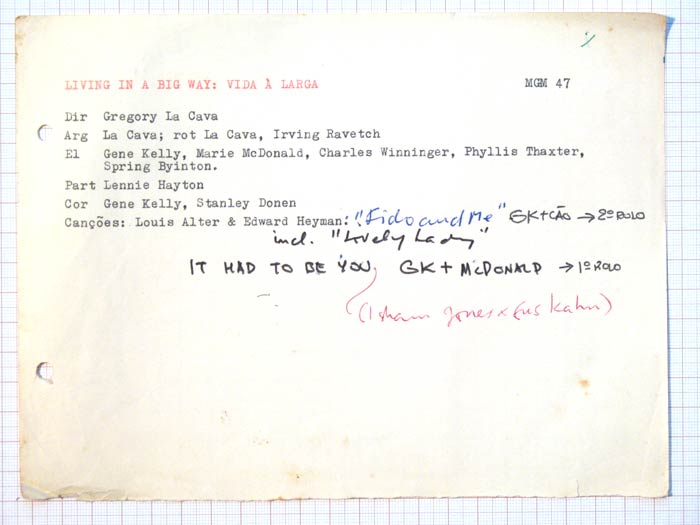 LIVING IN A BIG WAY: VIDA À LARGA MGM 47
Dir Gregory La Cava
Arg La Cava; rot La Cava, Irving Ravetch
El Gene Kelly, Marie McDonald, Charles Winninger, Phyllis Thaxter,
Spring Byinton.
Part Lennie Hayton
Cor Gene Kelly, Stanley Donen
Canções: Louis Alter & Edward Heyman: "Fido and Me" GK+CÃO → 2º ROLO
incl. "Lovely Lady"
IT HAD TO BE YOU, GK + McDONALD → 1º ROLO
(Isham Jones x Gus Kahn)